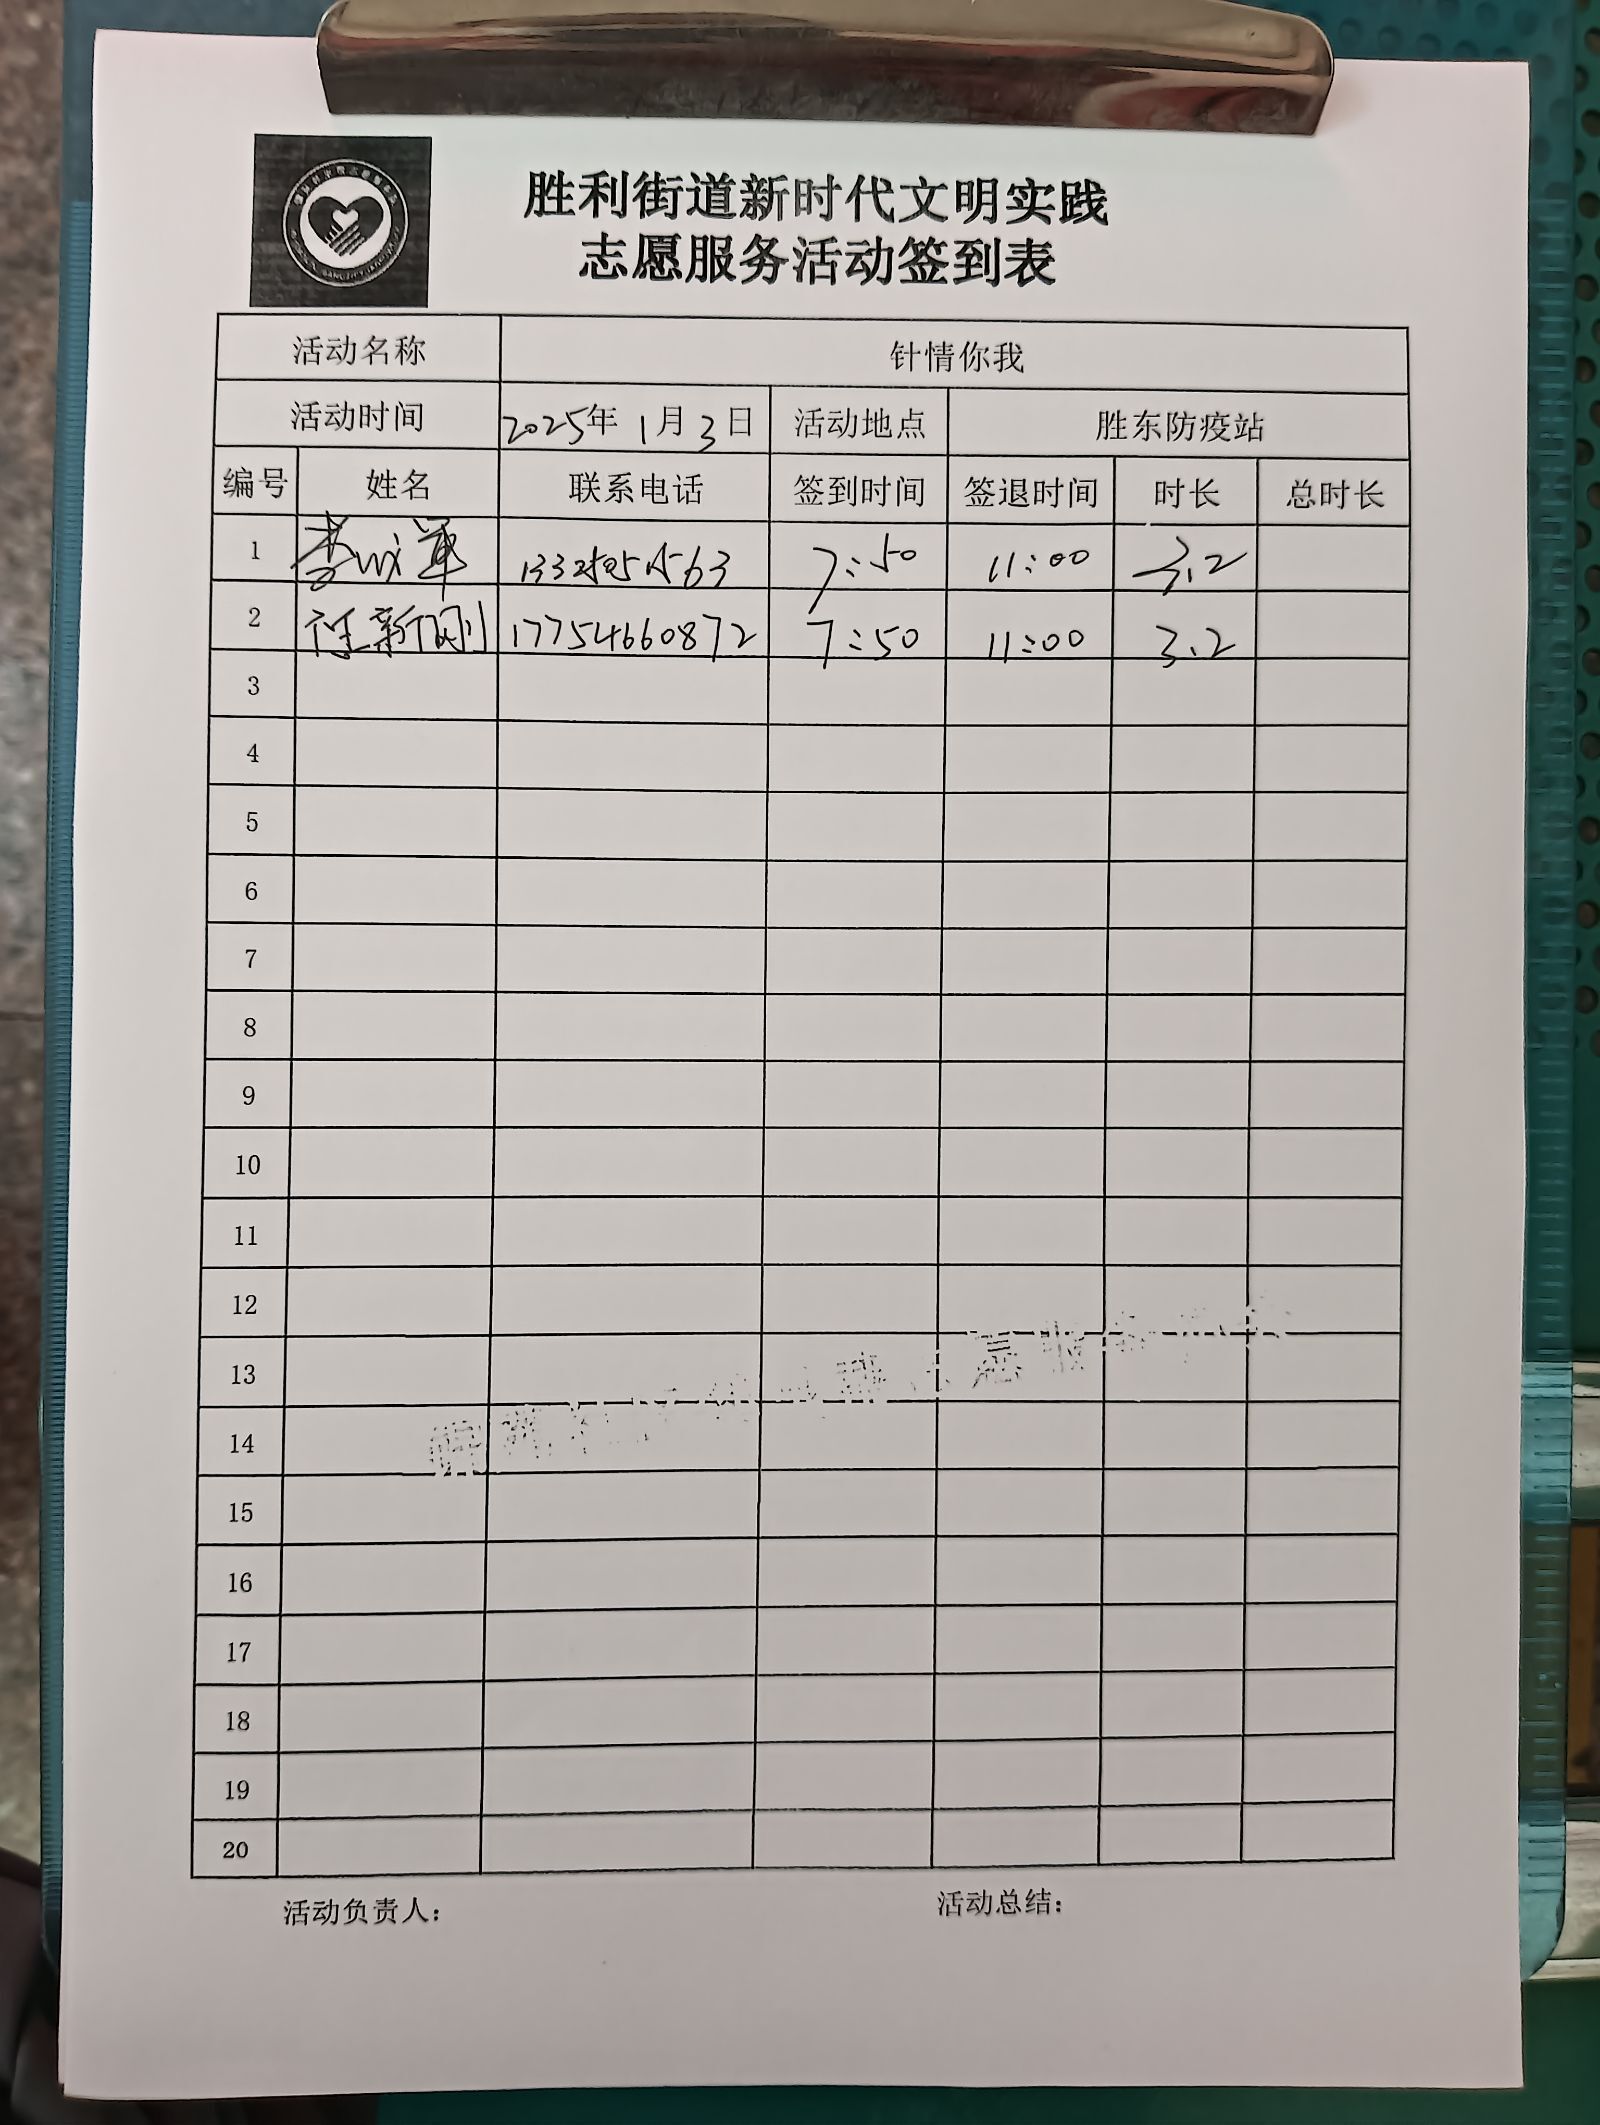 胜利街道新时代文明实践
志愿服务活动签到表
活动名称 针情你我
活动时间 2025年 1月 3日 活动地点 胜东防疫站
编号 姓名 联系电话 签到时间 签退时间 时长 总时长
1 李 军 7:50 11:00 3.2
2 新刚 17754660872 7:50 11:00 3.2
3
4
5
6
7
8
9
10
11
12
13
14
15
16
17
18
19
20
活动负责人： 活动总结：